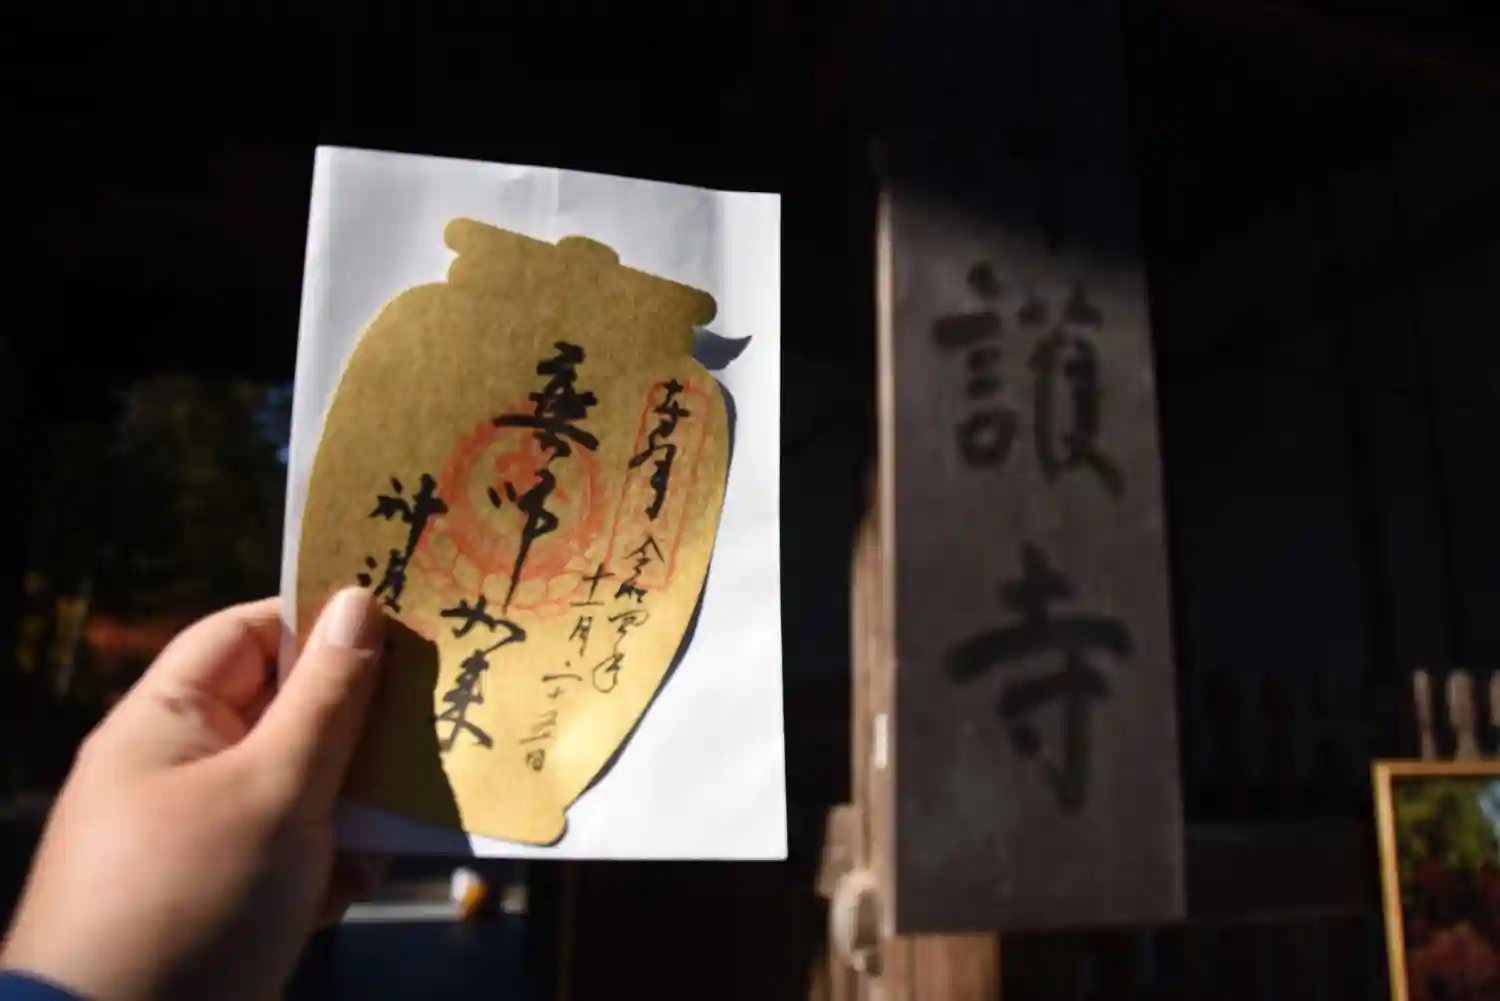 奉拝
令和四年
十一月二十三日
薬師
如来
神護
護寺